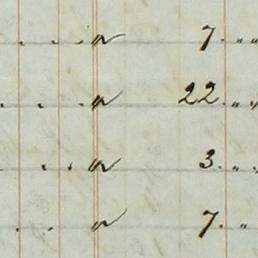 . . . . " 7 . " "
. . . . " 22 . " "
. . . " 3 . " "
. . . " 7 . "